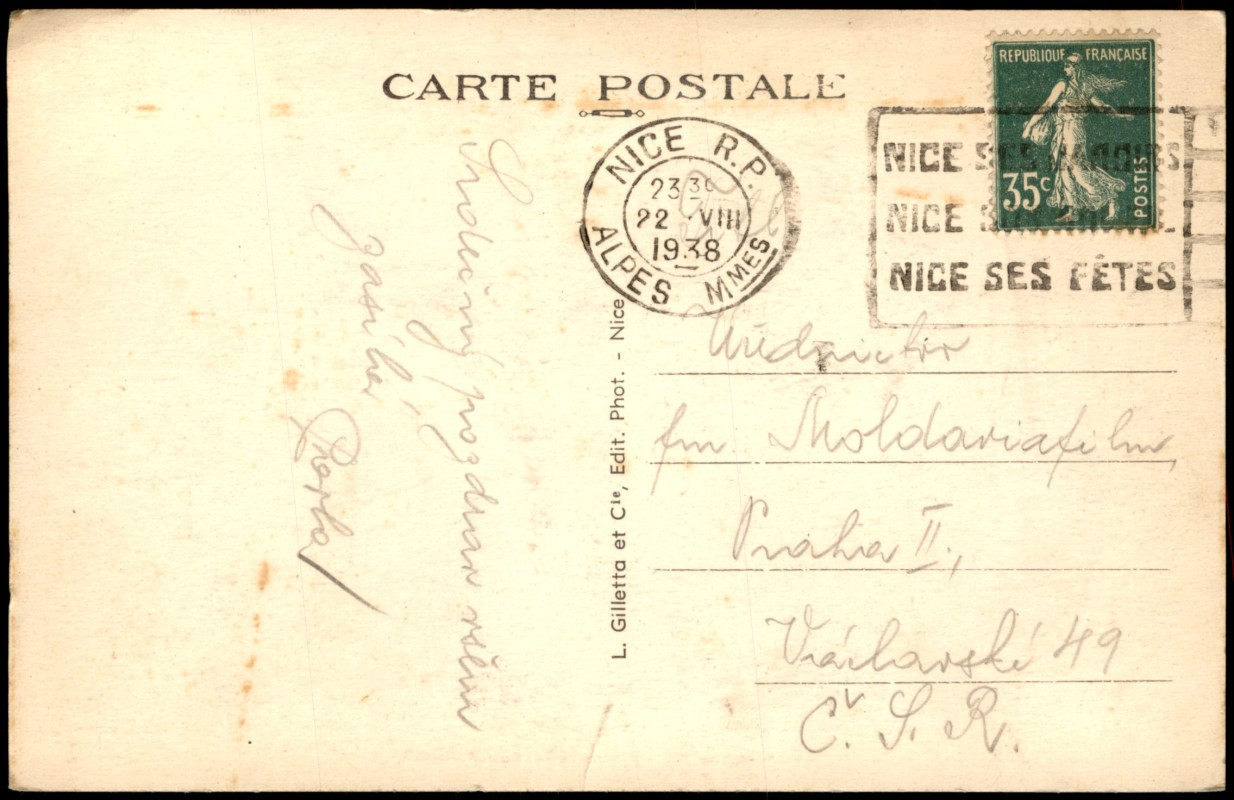 CARTE POSTALE
REPUBLIQUE FRANÇAISE
35c
POSTES
NICE R.P.
23 30
22 VIII
1938
ALPES MMES
NICE SES
NICE
NICE SES FÊTES
L. Gilletta et Cie, Edit. Phot. - Nice
Srdečný pozdrav všem
zasílá
fm Moldaviafilm,
Praha II.,
49
Č. S. R.